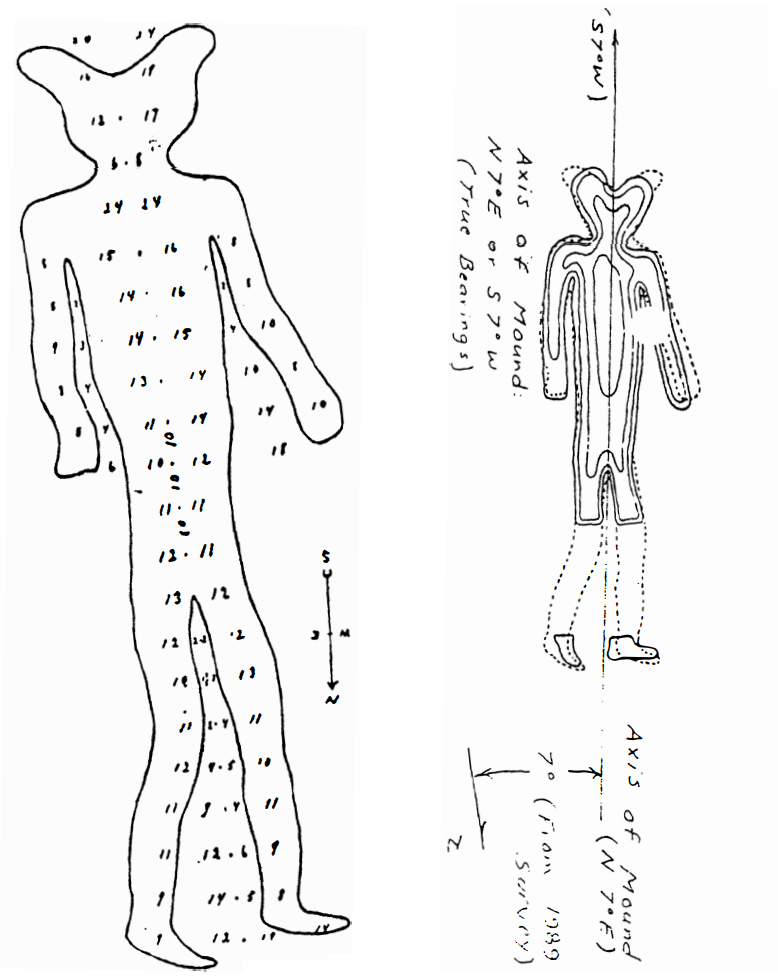 20 24
16 19
12 . 17
6 . 8
24 24
15 . 16
14 . 16
14 . 15
13 . 14
11 . 14
10
10 . 12
10
11 . 11
10
12 . 11
13 12
12 2-2 12
13
11 2-4 11
12 4-5 10
11 9-4 11
11 12-6 9
9 14-5 8
9 12 . 19 14
5
6
9
3
8
4
5
4
6
8
8
4
10
10
8
14
10
18
S
M
N
S7°W)
Axis of Mound:
N7°E or S7°W
(True Bearings)
Axis of Mound
(N7°E)
7° (From 1989
Survey)
N